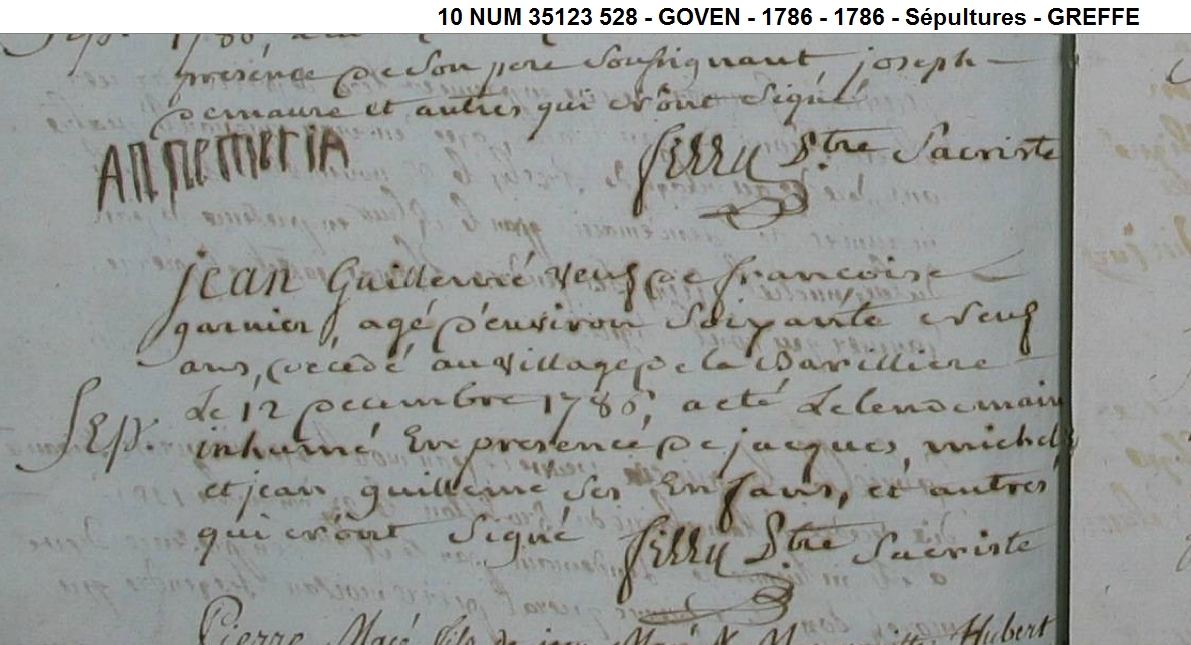 10 NUM 35123 528 - GOVEN - 1786 - 1786 - Sépultures - GREFFE
1786,
presence de Son pere Soussignant, joseph
demaure et autres qui n'ont Signé
Annemeria
ferru Ptre Sacriste
jean Guillemé Veuf de francoise
garnier, agé d'environ Soixante Neuf
ans, decedé au village de la Barilliere
Sep. Le 12 Decembre 1786, a eté Le lendemain
inhumé En presence de jacques, michel,
et jean guillemé, Ses Enfans, et autres
qui n'ont Signé ferru Ptre Sacriste
Pierre Macé fils de jean Macé & Hubert